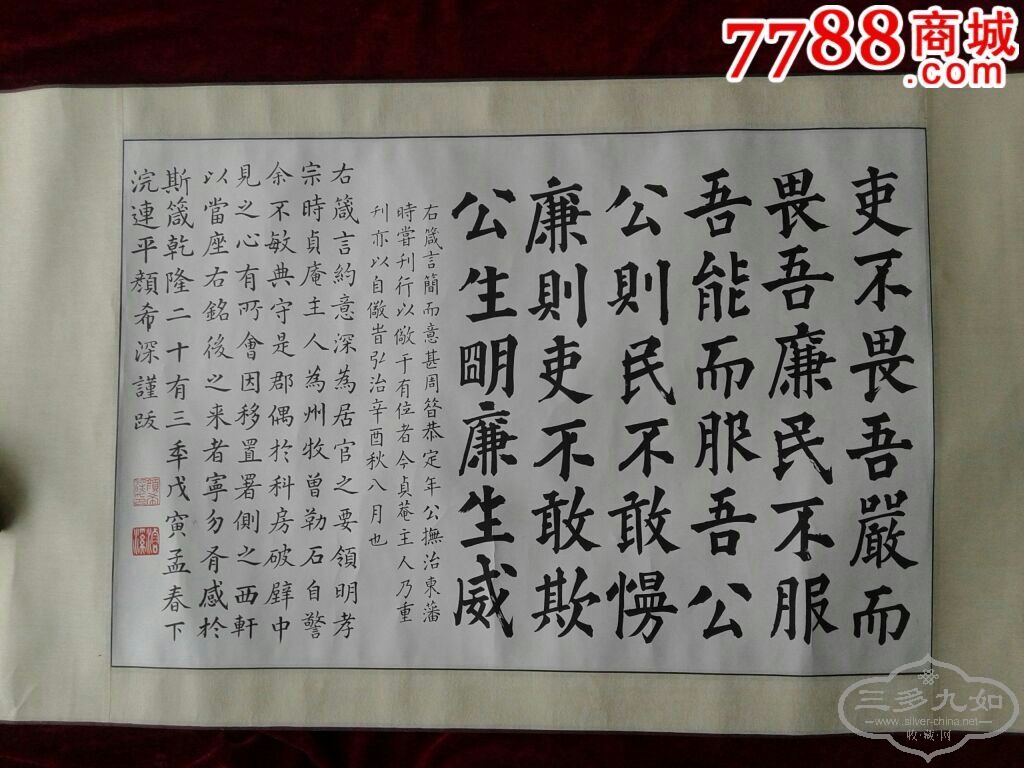 吏不畏吾嚴而
畏吾廉民不服
吾能而服吾公
公則民不敢慢
廉則吏不敢欺
公生朙廉生威
右箴言簡而意甚周恭定年公撫治東藩
時嘗刊行以儆于有位者今貞菴主人乃重
刊亦以自儆旹弘治辛酉秋八月也
右箴言約意深為居官之要領明孝
宗時貞庵主人為州牧曾勒石自警
余不敏典守是郡偶於科房破壁中
見之心有所會因移置署側之西軒
以當座右銘後之来者寧勿有感於
斯箴乾隆二十有三年戊寅孟春下
浣連平顏希深謹跋
7788商城
.com
三多九如
www.silver-china.net
收·藏·网